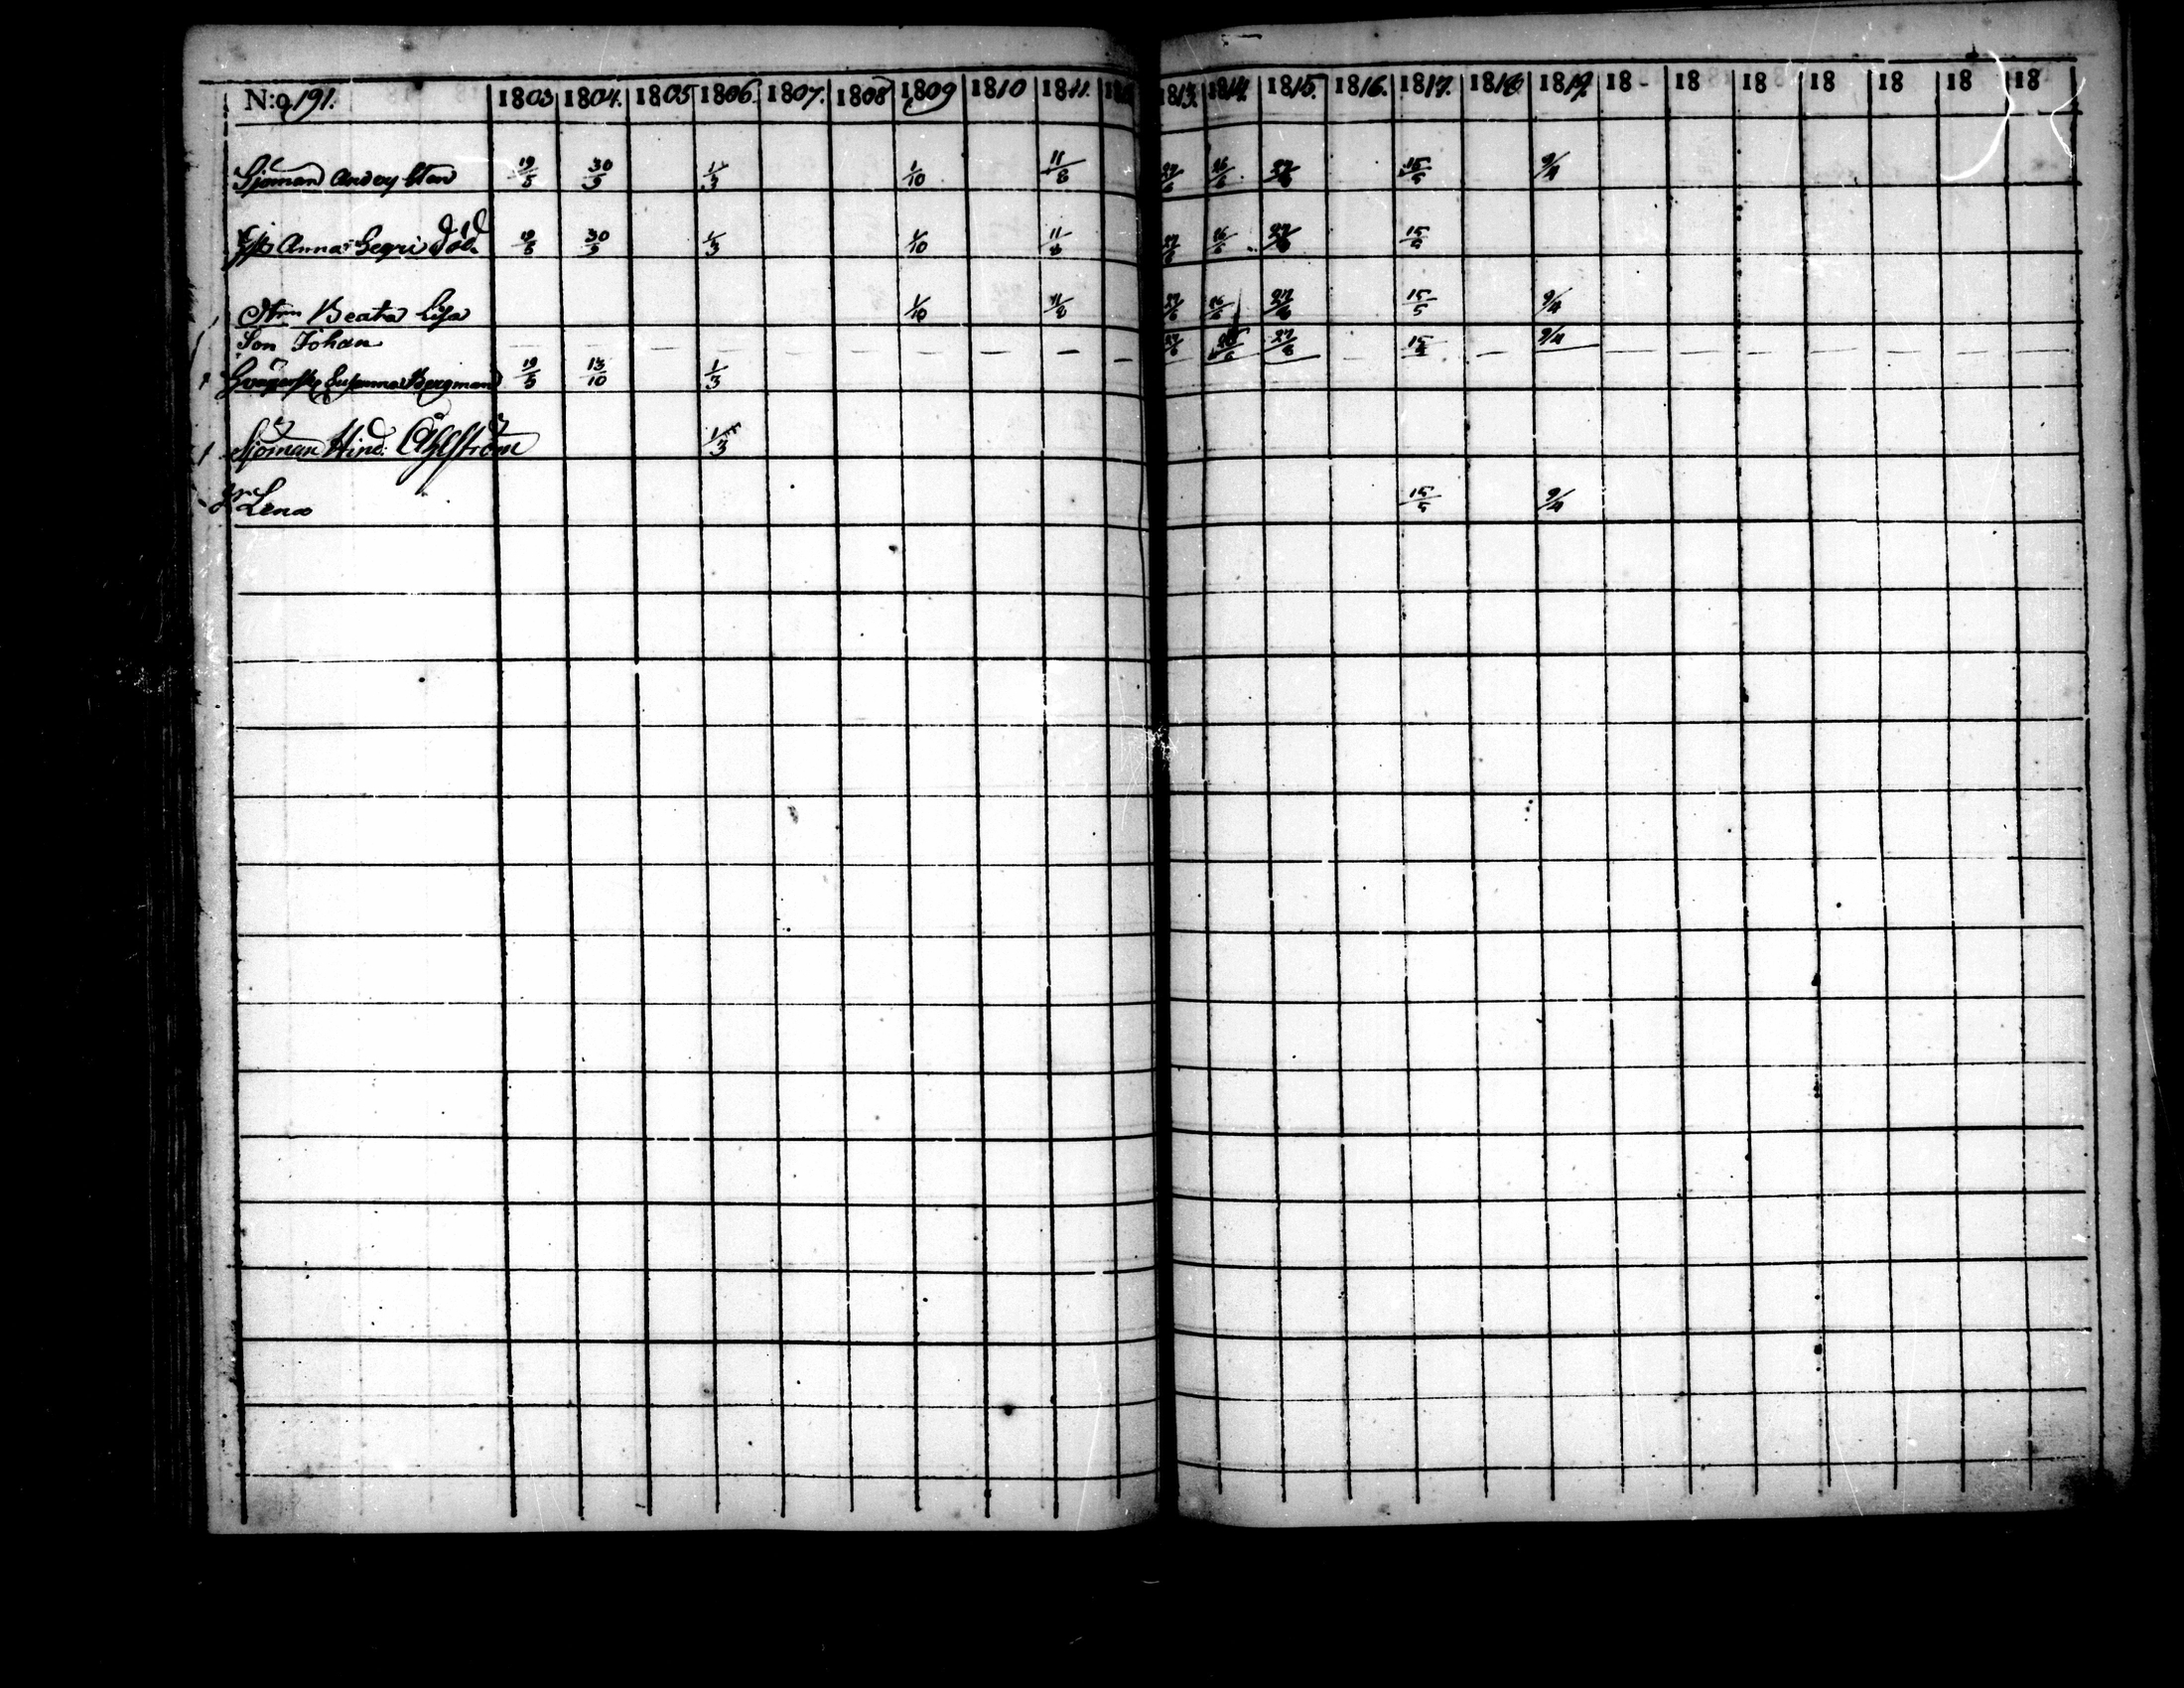 N:o 191. 1803 1804. 1805 1806. 1807. 1808 1809 1810 1811. 1813. 1814. 1815. 1816. 1817. 1818 1819. 18 18 18 18 18 18 18
Sjöman 19/5 30/9 1/3 1/10 11/8 27/6 26/6 27/8 15/5 9/4
Anna död 19/5 30/9 1/3 1/10 11/8 27/6 26/6 27/8 15/5
Beata Lisa 1/10 11/8 27/6 26/6 27/8 15/5 9/4
Son Johan 27/6 26/6 27/8 15/5 9/4
Susanna Bergman 19/5 13/10 1/3
Sjöman Hind: Åhlström 1/3
Lena 15/5 9/4